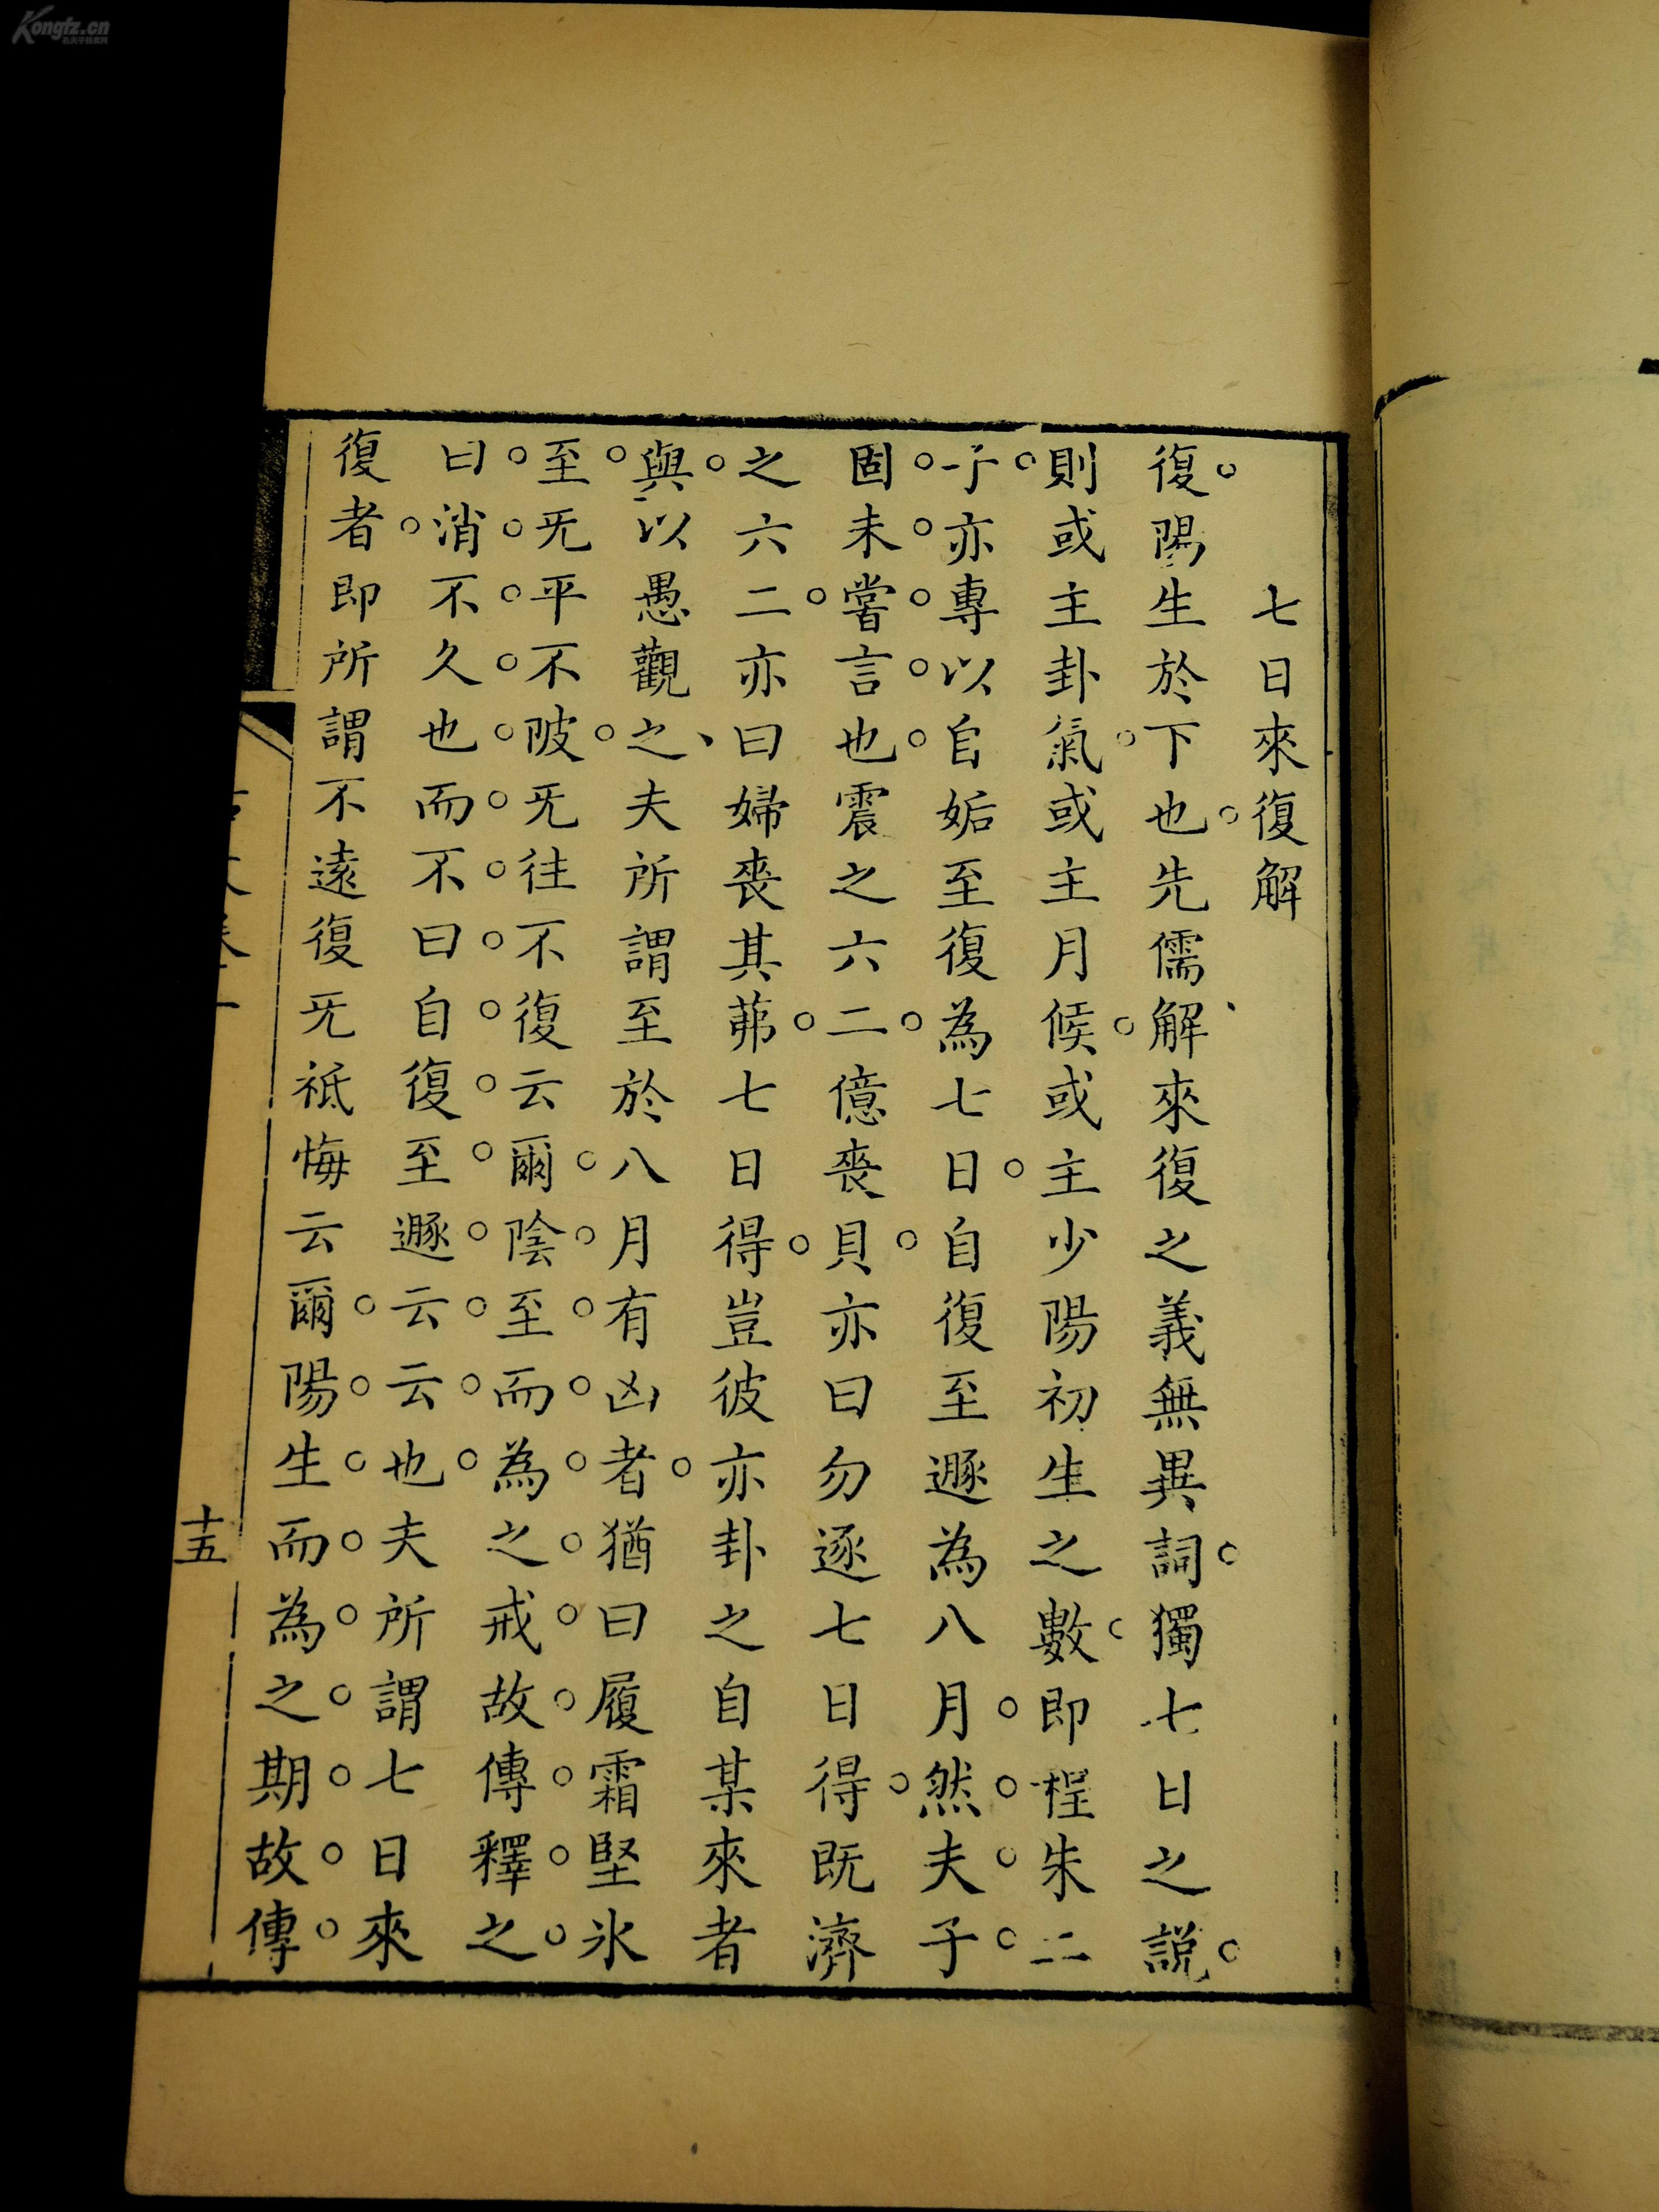 七日來復解
復陽生於下也先儒解來復之義無異詞獨七日之說
則或主卦氣或主月候或主少陽初生之數即程朱二
子亦專以自姤至復為七日自復至遯為八月然夫子
固未嘗言也震之六二億喪貝亦曰勿逐七日得既濟
之六二亦曰婦喪其茀七日得豈彼亦卦之自某來者
與以愚觀之夫所謂至於八月有凶者猶曰履霜堅氷
至旡平不陂旡往不復云爾陰至而為之戒故傳釋之
曰消不久也而不曰自復至遯云云也夫所謂七日來
復者即所謂不遠復旡祇悔云爾陽生而為之期故傳
十五
Kongfz.cn